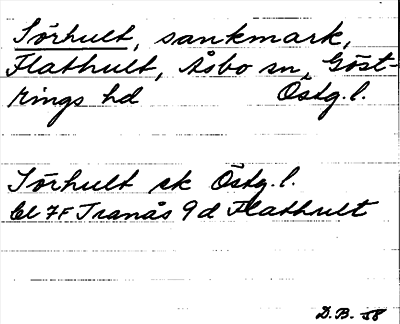 Sörhult, sankmark,
Flathult, Åsbo sn, Göst-
rings hd Östg.l.
Sörhult ek Östg.l.
bl 7F Tranås 9d Flathult
D.B. 58